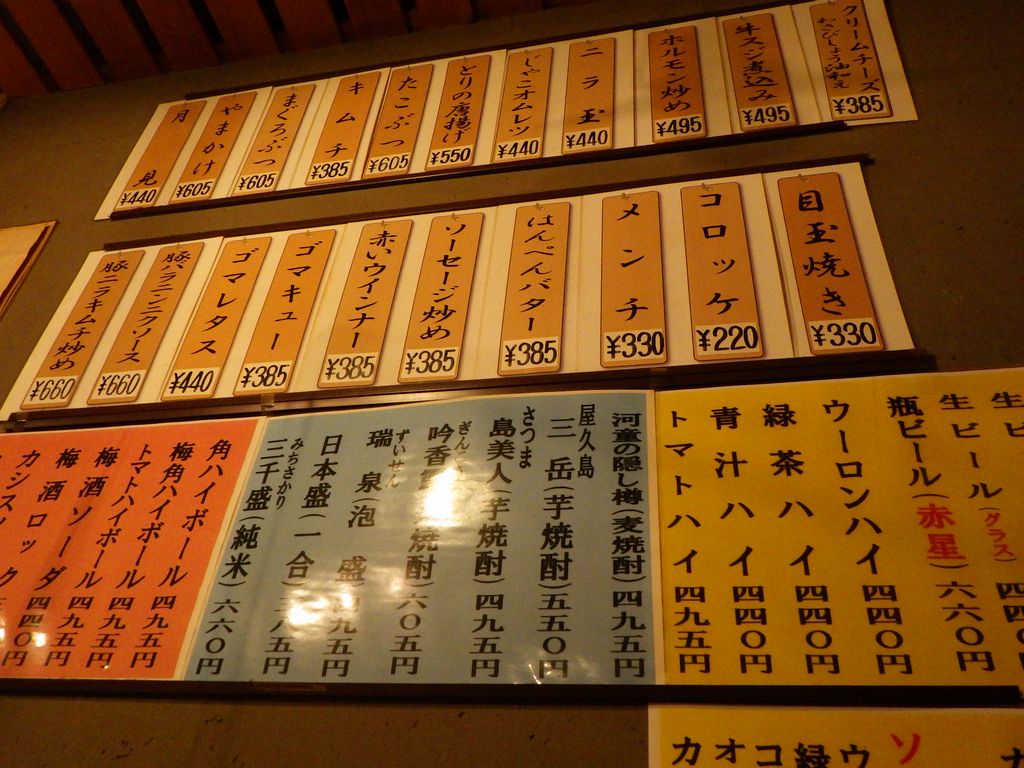 クリームチーズ
わさびしょう油和え
¥385
牛スジ煮込み
¥495
ホルモン炒め
¥495
ニラ玉
¥440
じゃこオムレツ
¥440
とりの唐揚げ
¥550
たこぶつ
¥605
キムチ
¥385
まぐろぶつ
¥605
やまかけ
¥605
月見
¥440
目玉焼き
¥330
コロッケ
¥220
メンチ
¥330
はんぺんバター
¥385
ソーセージ炒め
¥385
赤いウインナー
¥385
ゴマキュー
¥385
ゴマレタス
¥440
豚バラニンニクソース
¥660
豚ニラキムチ炒め
¥660
生ビ
生ビール(グラス)
瓶ビール(赤星)六六〇円
ウーロンハイ四四〇円
緑茶ハイ四四〇円
青汁ハイ四四〇円
トマトハイ四九五円
河童の隠し樽(麦焼酎)四九五円
屋久島
三岳(芋焼酎)五五〇円
さつま
島美人(芋焼酎)四九五円
吟香 焼酎)六〇五円
ずいせん
瑞泉泡盛四九五円
日本盛(一合) 八五円
みちさかり
三千盛(純米)六六〇円
角ハイボール
梅角ハイボール四九五円
トマトハイボール四九五円
梅酒ソーダ四四〇円
梅酒ロック四四〇円
カシスソ
ソ
ウ
緑
コ
オ
カ